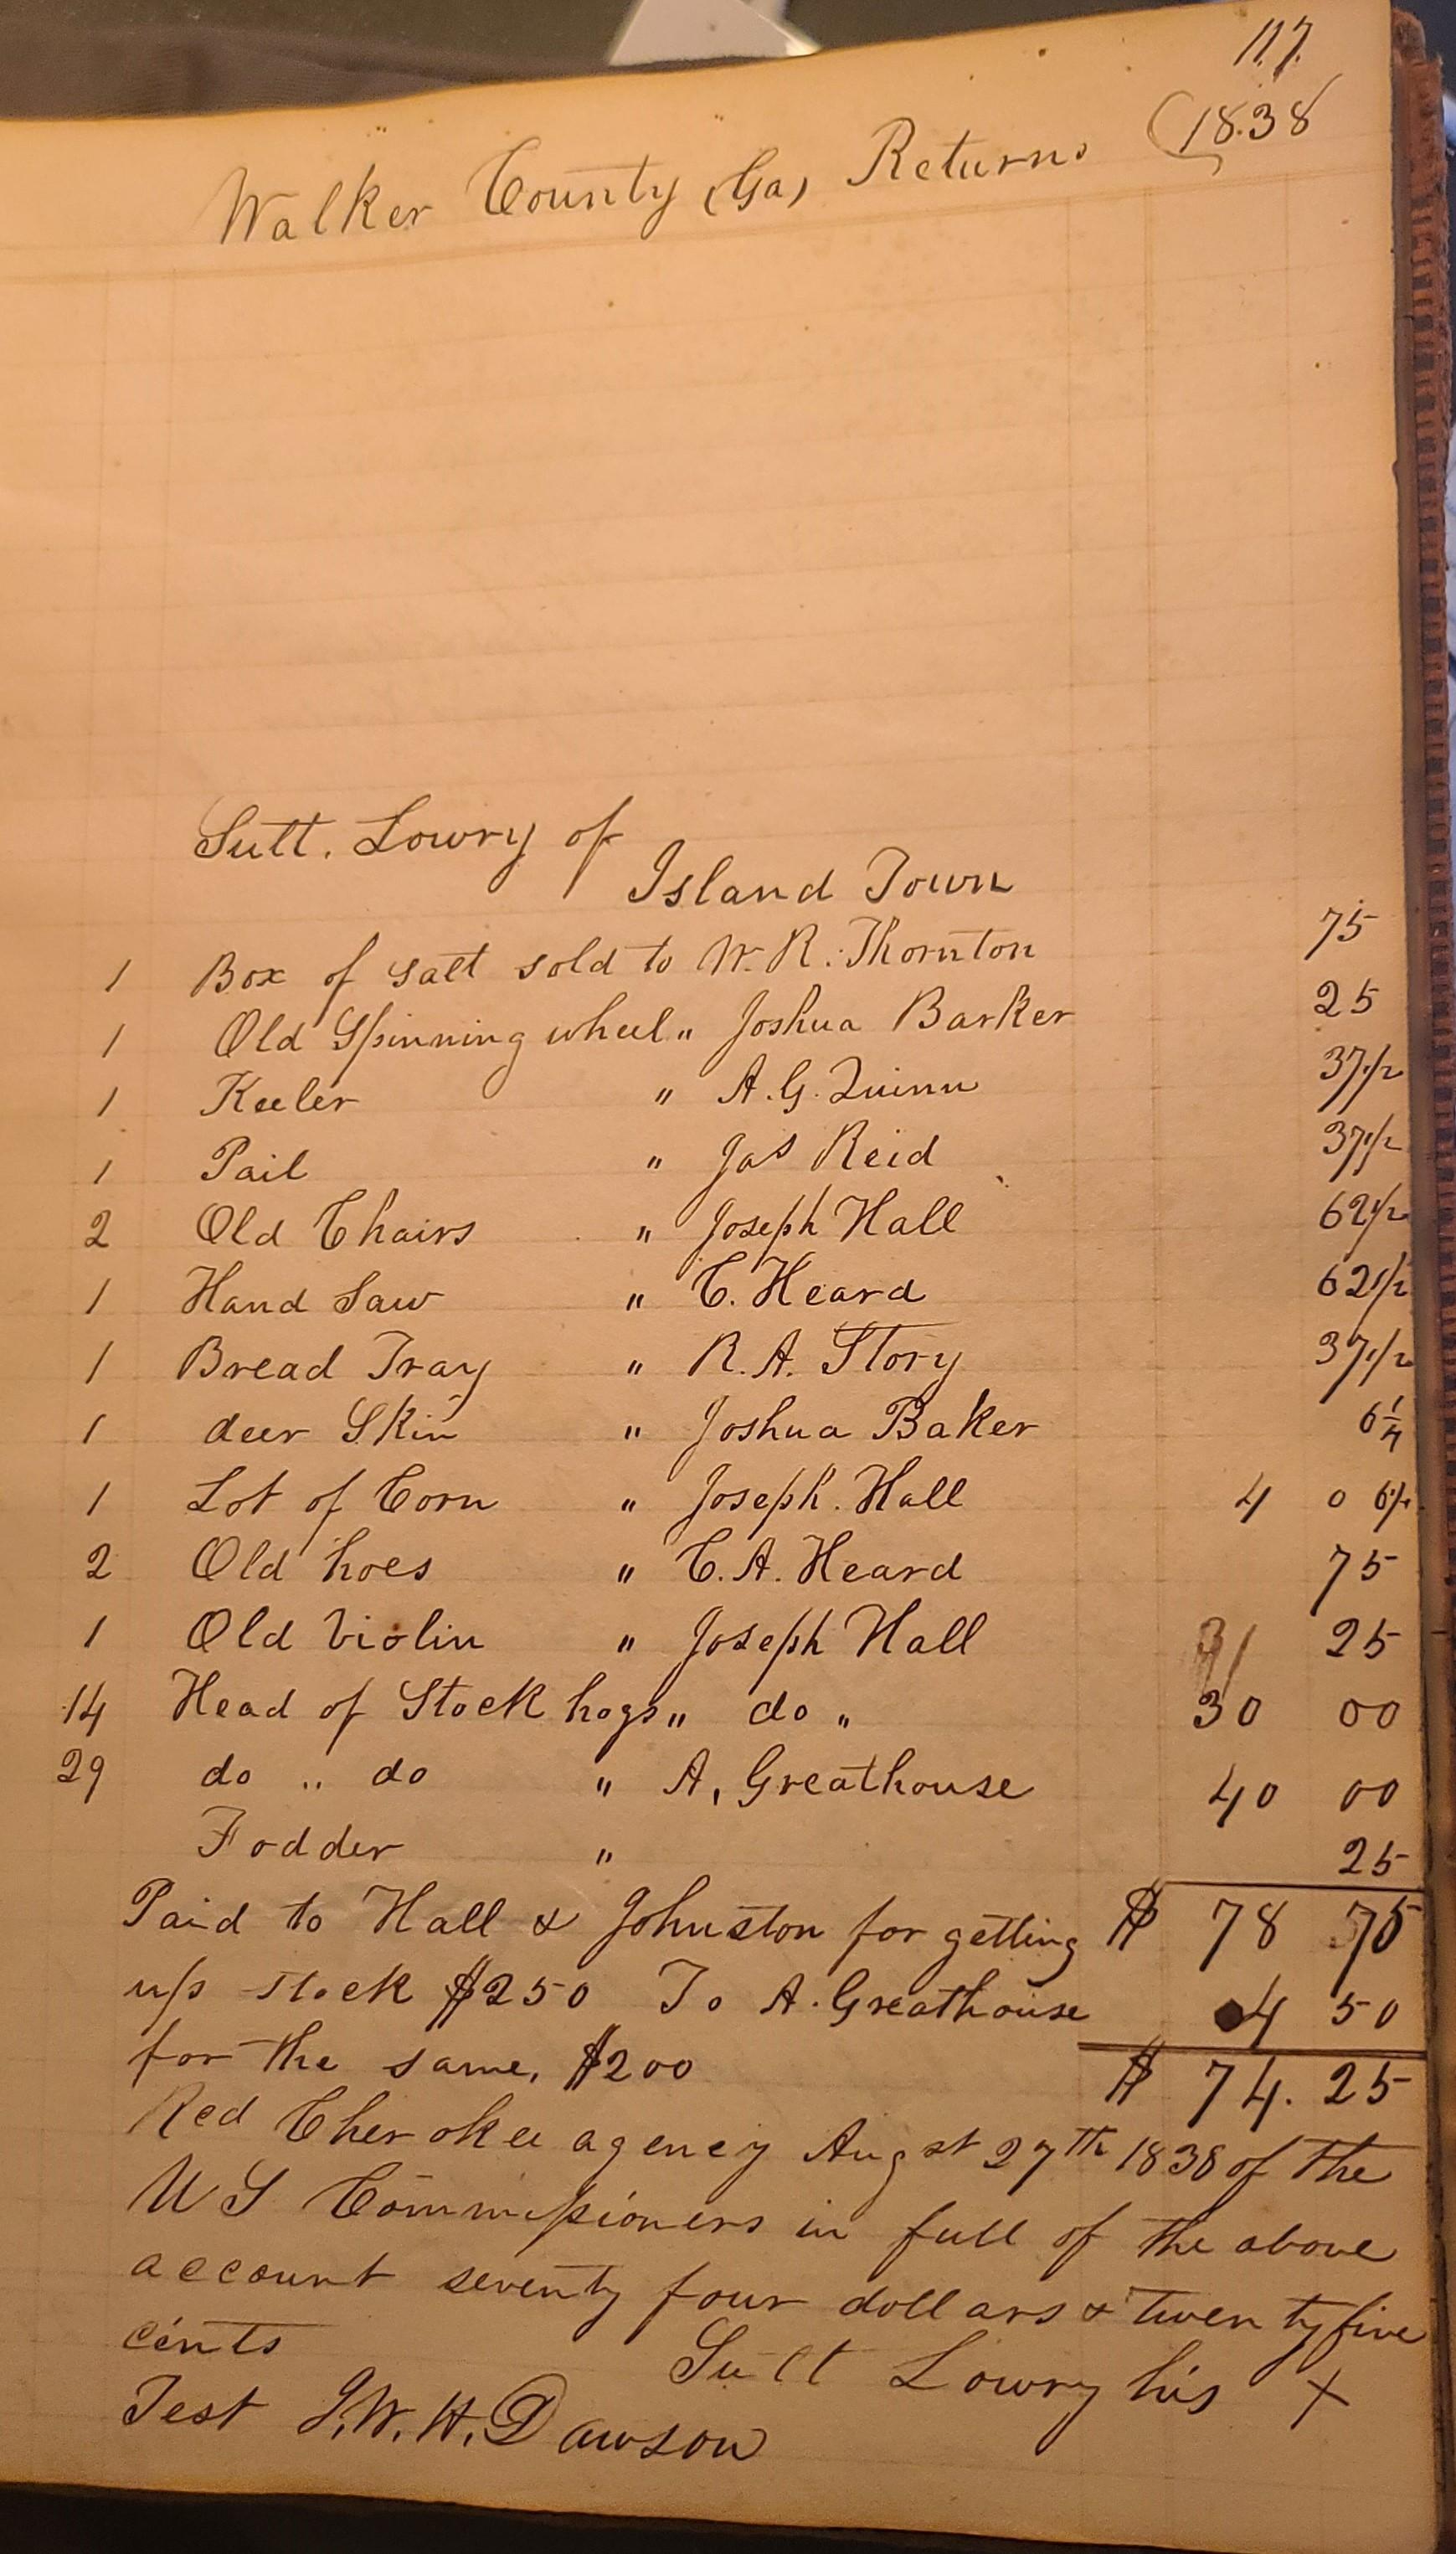 117.
Walker County (Ga) Returns (1838
Sutt. Lowry of
Island Town
1 Box of Salt sold to W. R. Thornton 75
1 Old Spinning wheel " Joshua Barker 25
1 Keeler " A. G. Quinn 37 1/2
1 Pail " Jas Reid 37 1/2
2 Old Chairs " Joseph Hall 62 1/2
1 Hand Saw " C. Heard 62 1/2
1 Bread Tray " R. A. Story 37 1/2
1 deer Skin " Joshua Baker 6 1/4
1 Lot of Corn " Joseph. Hall 4 0 6 1/4
2 Old hoes " C. A. Heard 75
1 Old Violin " Joseph Hall 25
14 Head of Stock hogs " do " 30 00
29 do " do " A. Greathouse 40 00
Fodder " 25
Paid to Hall & Johnston for getting $ 78 75
up stock $250 To A. Greathouse 4 50
for the same, $200 $ 74. 25
Red Cherokee agency Augst 27th 1838 of the
U S Commissioners in full of the above
account seventy four dollars & twenty five
cents Sutt Lowry his X
Test J. W. H. Dawson